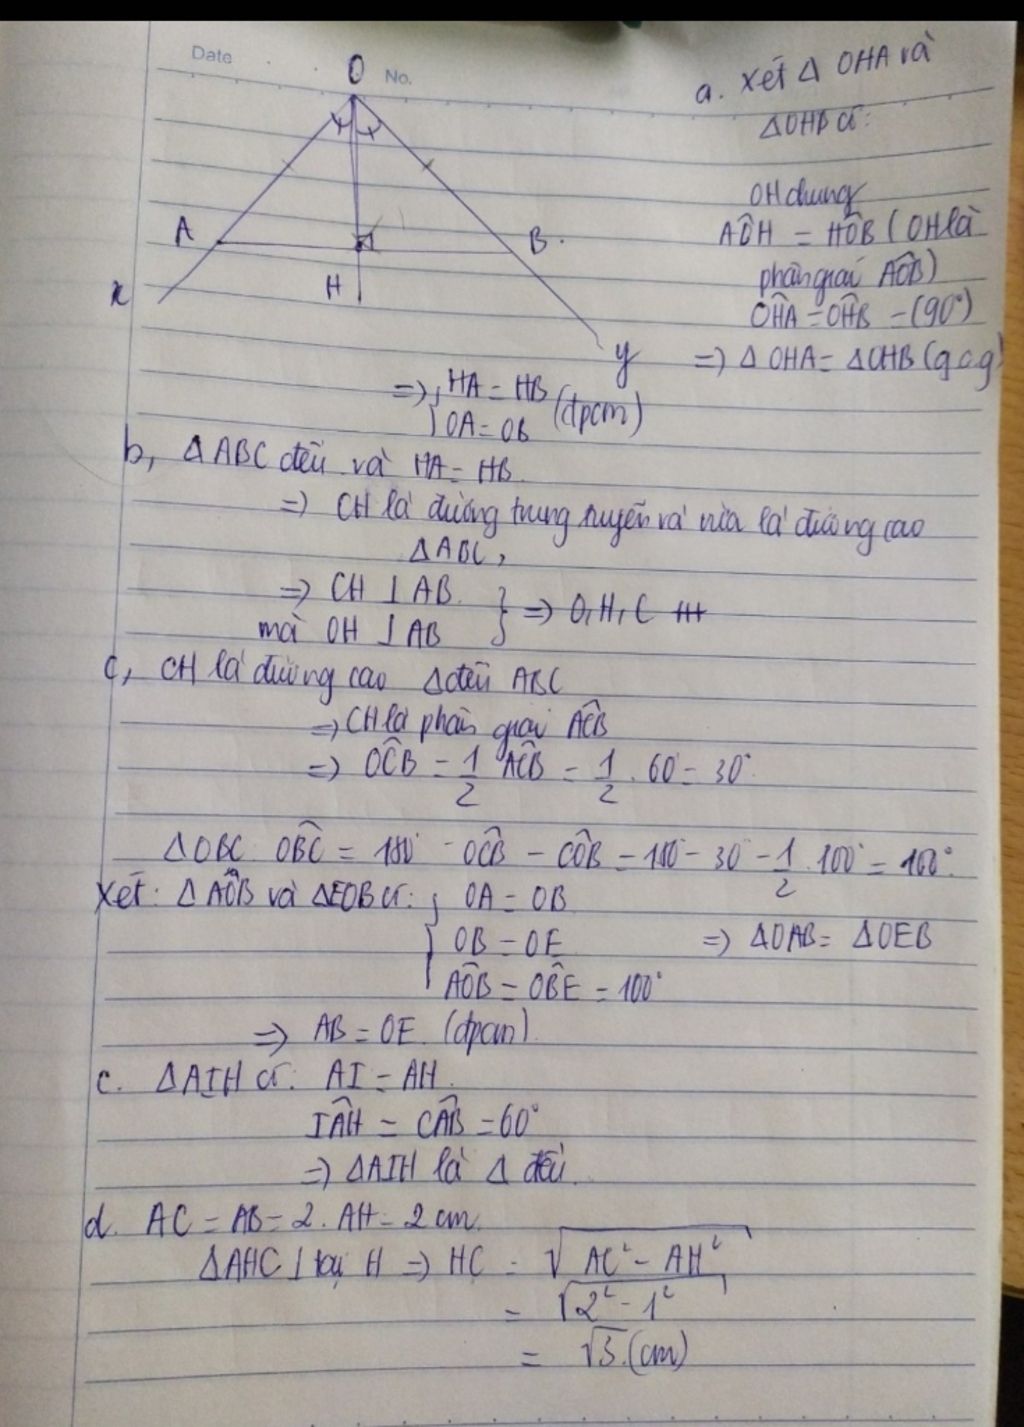 Date
No.
O
A
B.
H
x
y
a. Xét Δ OHA và
ΔOHB có:
OH chung
AÔH = HÔB (OH là
phân giác AÔB)
OĤA = OĤB = (90°)
=> Δ OHA = ΔOHB (g.c.g)
=> { HA = HB
OA = OB (đpcm)
b, ΔABC đều và HA = HB.
=> CH là đường trung tuyến và vừa là đường cao
ΔABC,
=> CH ⊥ AB.
mà OH ⊥ AB } => O, H, C
c, CH là đường cao Δ đều ABC
=> CH là phân giác AĈB
=> OĈB = 1/2 AĈB = 1/2 . 60° = 30°.
ΔOBC OB̂C = 180° - OĈB - CÔB = 180° - 30° - 1/2 . 100° = 100°.
Xét: Δ AÔB và ΔEOB có: { OA = OB
OB = OE => ΔOAB = ΔOEB
AÔB = OB̂E = 100°
=> AB = OE (đpcm).
c. ΔAIH có: AI = AH.
IÂH = CÂB = 60°
=> ΔAIH là Δ đều.
d. AC = AB = 2. AH = 2 cm.
ΔAHC ⊥ tại H => HC = √(AC² - AH²)
= √(2² - 1²)
= √3 (cm)